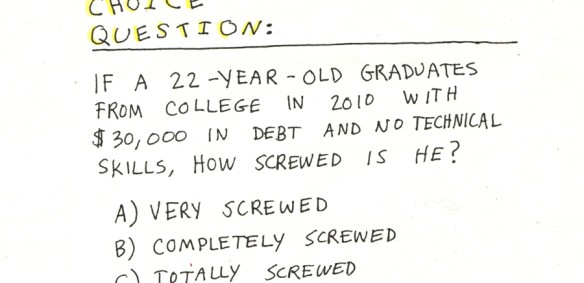 CHOICE
QUESTION:
IF A 22-YEAR-OLD GRADUATES
FROM COLLEGE IN 2010 WITH
$30,000 IN DEBT AND NO TECHNICAL
SKILLS, HOW SCREWED IS HE?
A) VERY SCREWED
B) COMPLETELY SCREWED
C) TOTALLY SCREWED